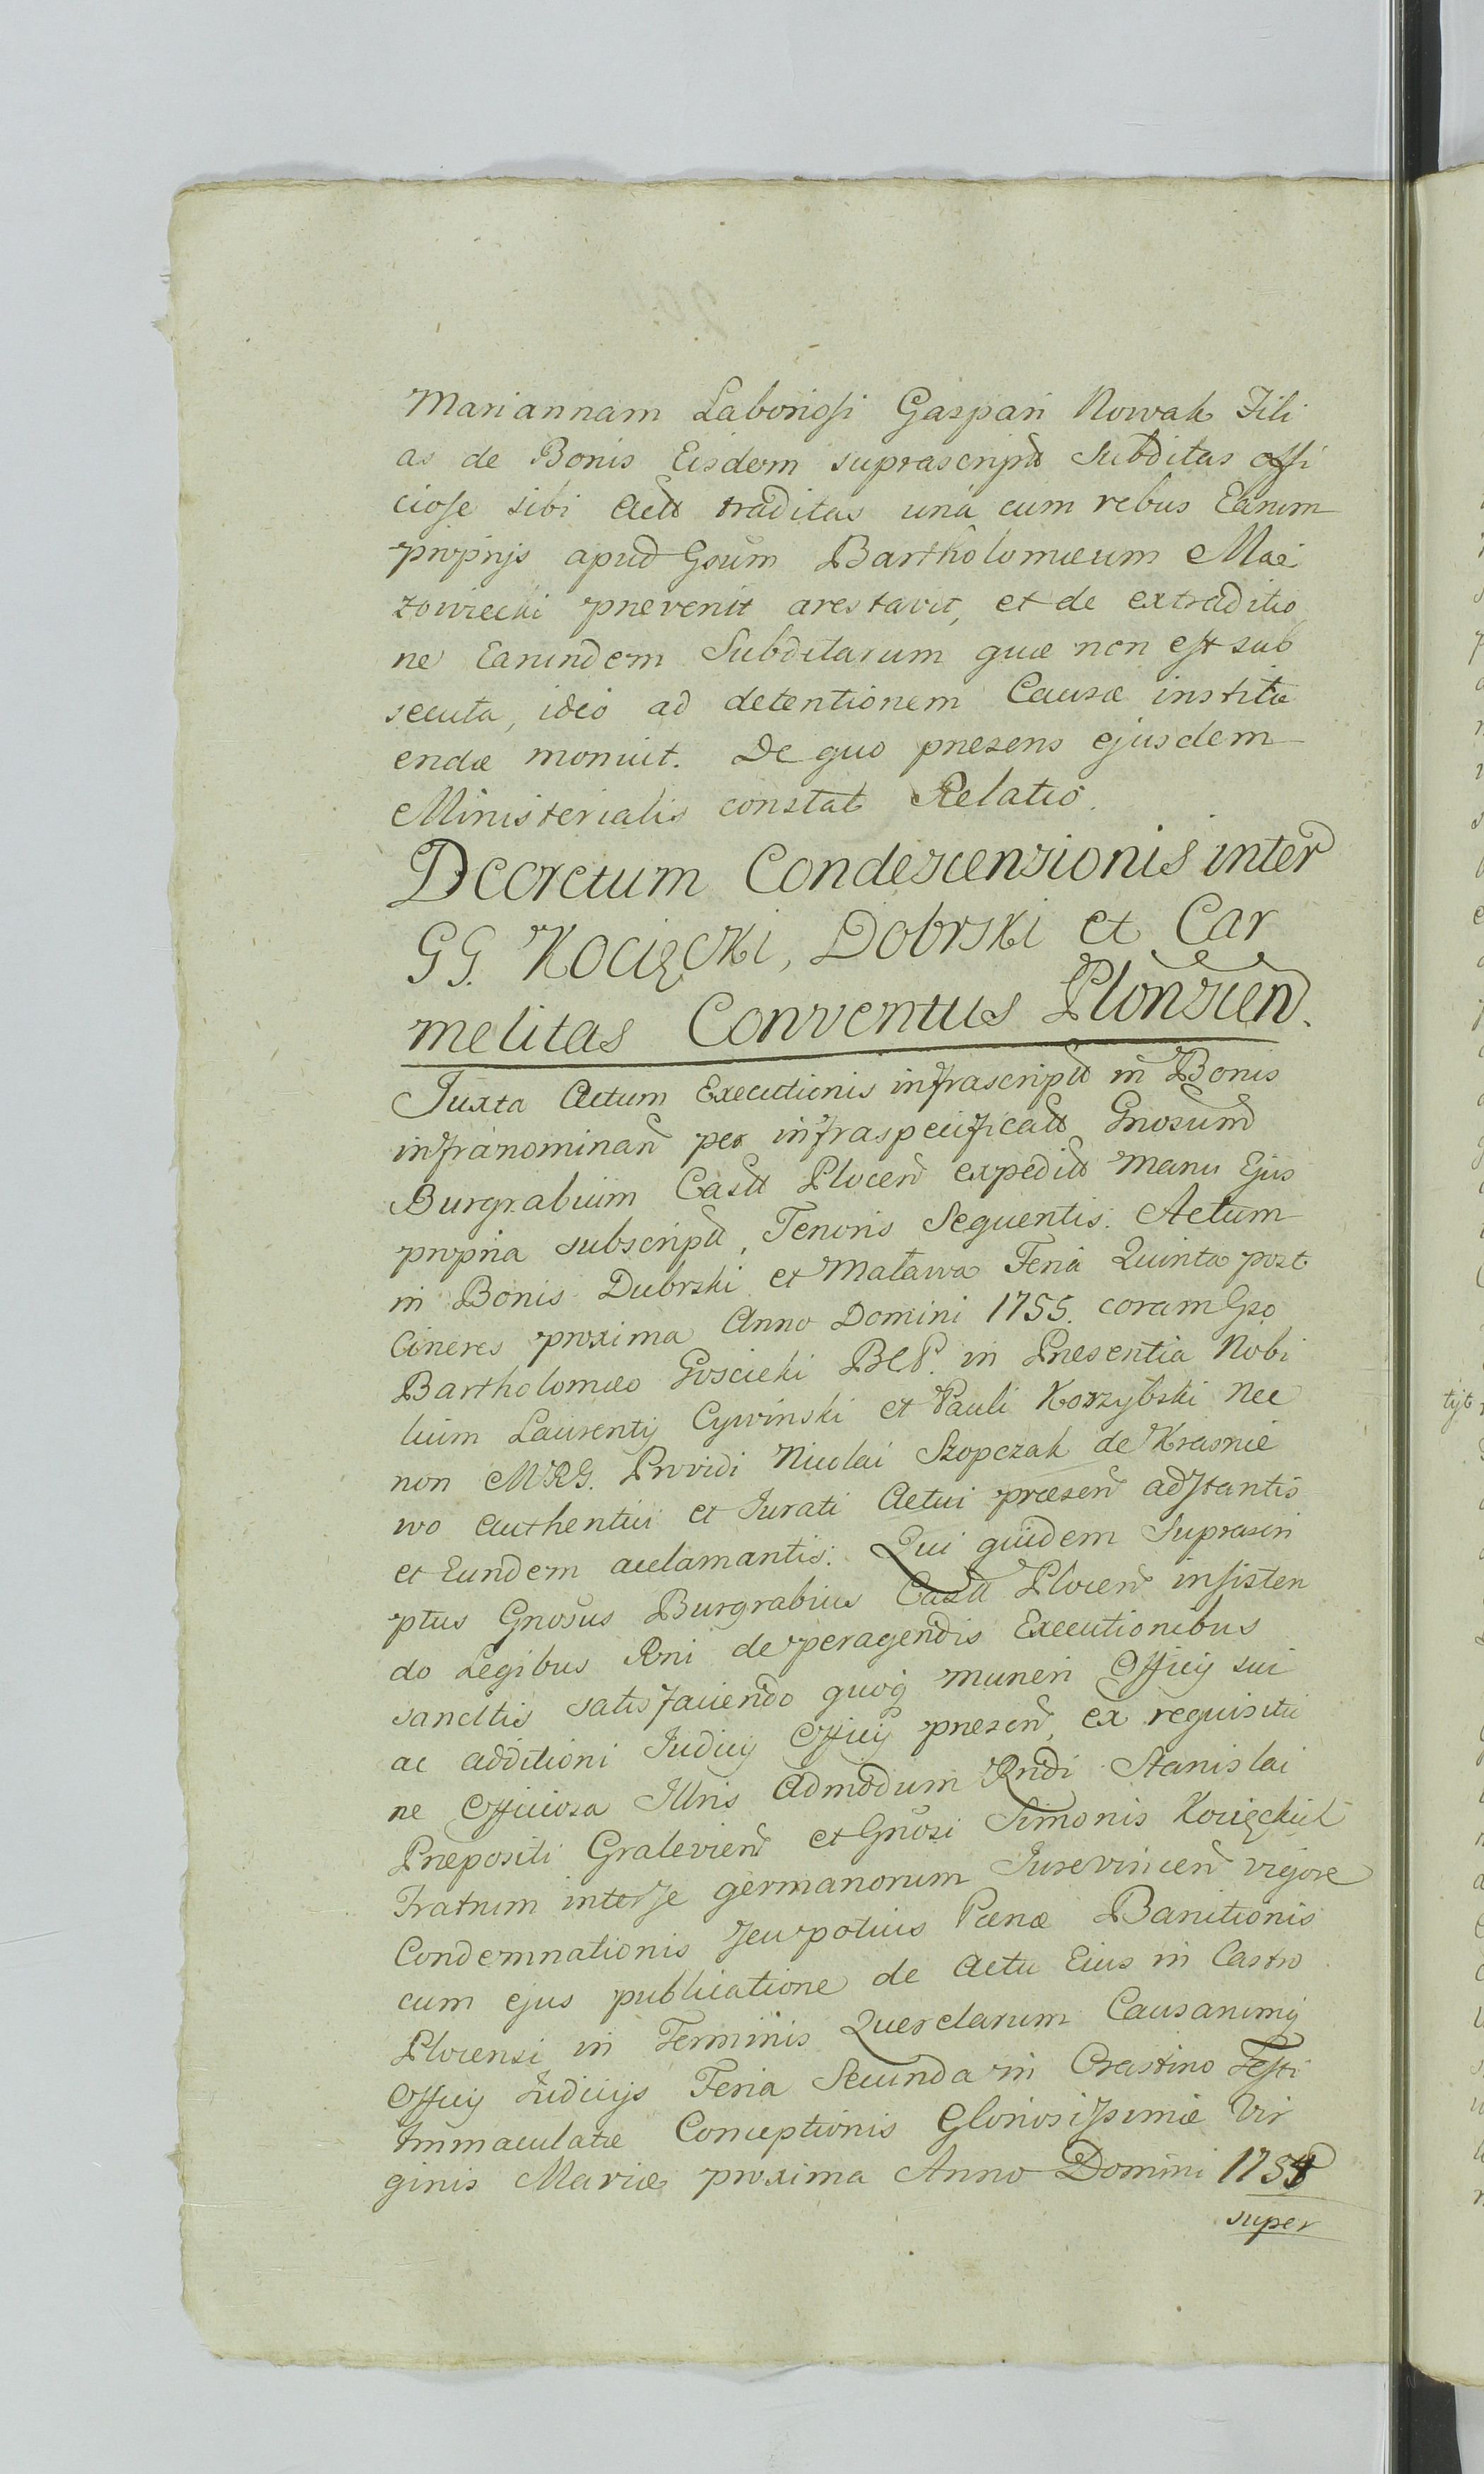 Mariannam Laboriosi Gaspari Nowak Fili
as de Bonis Eisdem suprascriptt Subditas offi
ciose sibi Actt traditas una cum rebus Earum
proprijs apud Gsum Bartholomæum Ma
zowiecki prevenit arestavit, et de extraditio
ne Earundem Subditarum quæ non est sub
secuta, ideo ad detentionem Causæ institu
endæ monuit. De quo presens ejusdem
Ministerialis constat Relatio.
Decretum Condescensionis inter
GG. Kocięcki, Dobrski et Car
melitas Conventus Plonscen.
Juxta Actum Executionis infrascriptt in Bonis
infranominan per infraspecificatt Gnosum
Burgrabium Castt Plocen expeditt manu Ejus
propria subscriptt, Tenoris Sequentis. Actum
in Bonis Dubrski et Maława Feria Quinta post
Cineres proxima Anno Domini 1755. coram Gso
Bartholomæo Goscicki BCP. in Presentia Nobi
lium Laurentij Cywinski et Pauli Korzybski Nec
non MRG. Providi Nicolai Szopczak de Krasnie
wo authentici et Jurati Actui præsen adstantis
et Eundem acclamantis. Qui quidem Suprascri
ptus Gnosus Burgrabius Castt Plocen insisten
do Legibus Rni de peragendis Executionibus
sancitis satisfaciendo quoq muneri Officij sui
ac additioni Judicij Officij presen, ex requisitio
ne Officiosa Illris Admodum Rndi Stanislai
Prepositi Gralevien et Gnosi Simonis Kocięckich
Fratrum inter se germanorum Jurevincen vigore
Condemnationis seu potius Pœnæ Banitionis
cum ejus publicatione de Actu Eius in Castro
Plocensi in Terminis Querelarum Causarumq
Officij Judicijs Feria Secunda in Crastino Festi
Immaculatæ Conceptionis Gloriosissimæ Vir
ginis Mariæ proxima Anno Domini 1754
super